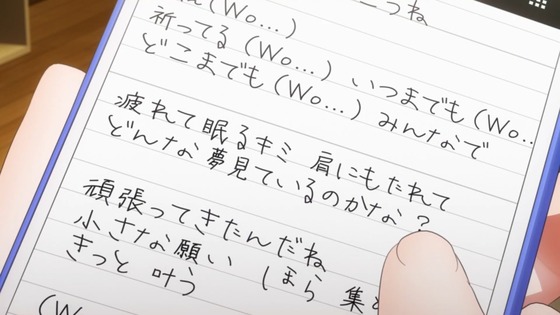 (Wo…)
祈ってる(Wo…) いつまでも(Wo…
どこまでも(Wo…) みんなで
疲れて眠るキミ 肩にもたれて
どんな夢見ているのかな?
頑張ってきたんだね
小さな願い ほら 集
きっと 叶う
(W